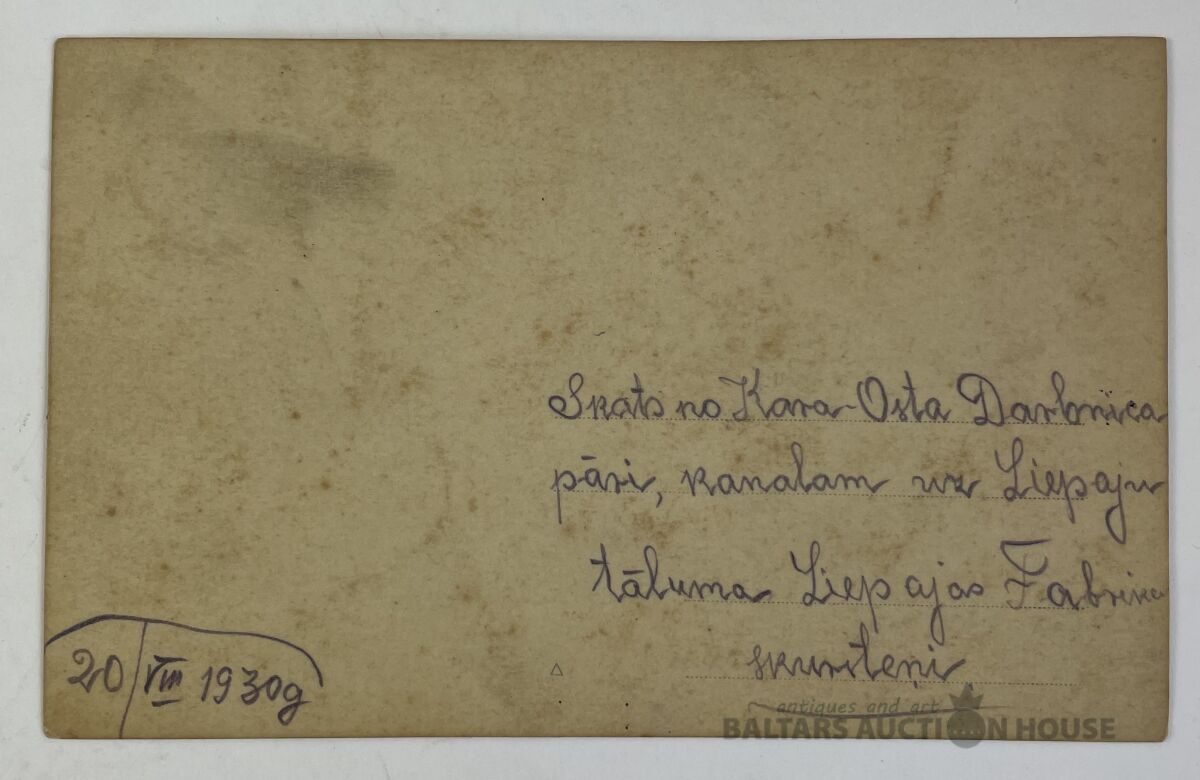 Skats no Kara-Osta Darbnica
pāri, kanalam uz Liepaju
tāluma Liepajas Fabrika
skursteņi
20/VIII 1930g
antiques and art
BALTARS AUCTION HOUSE